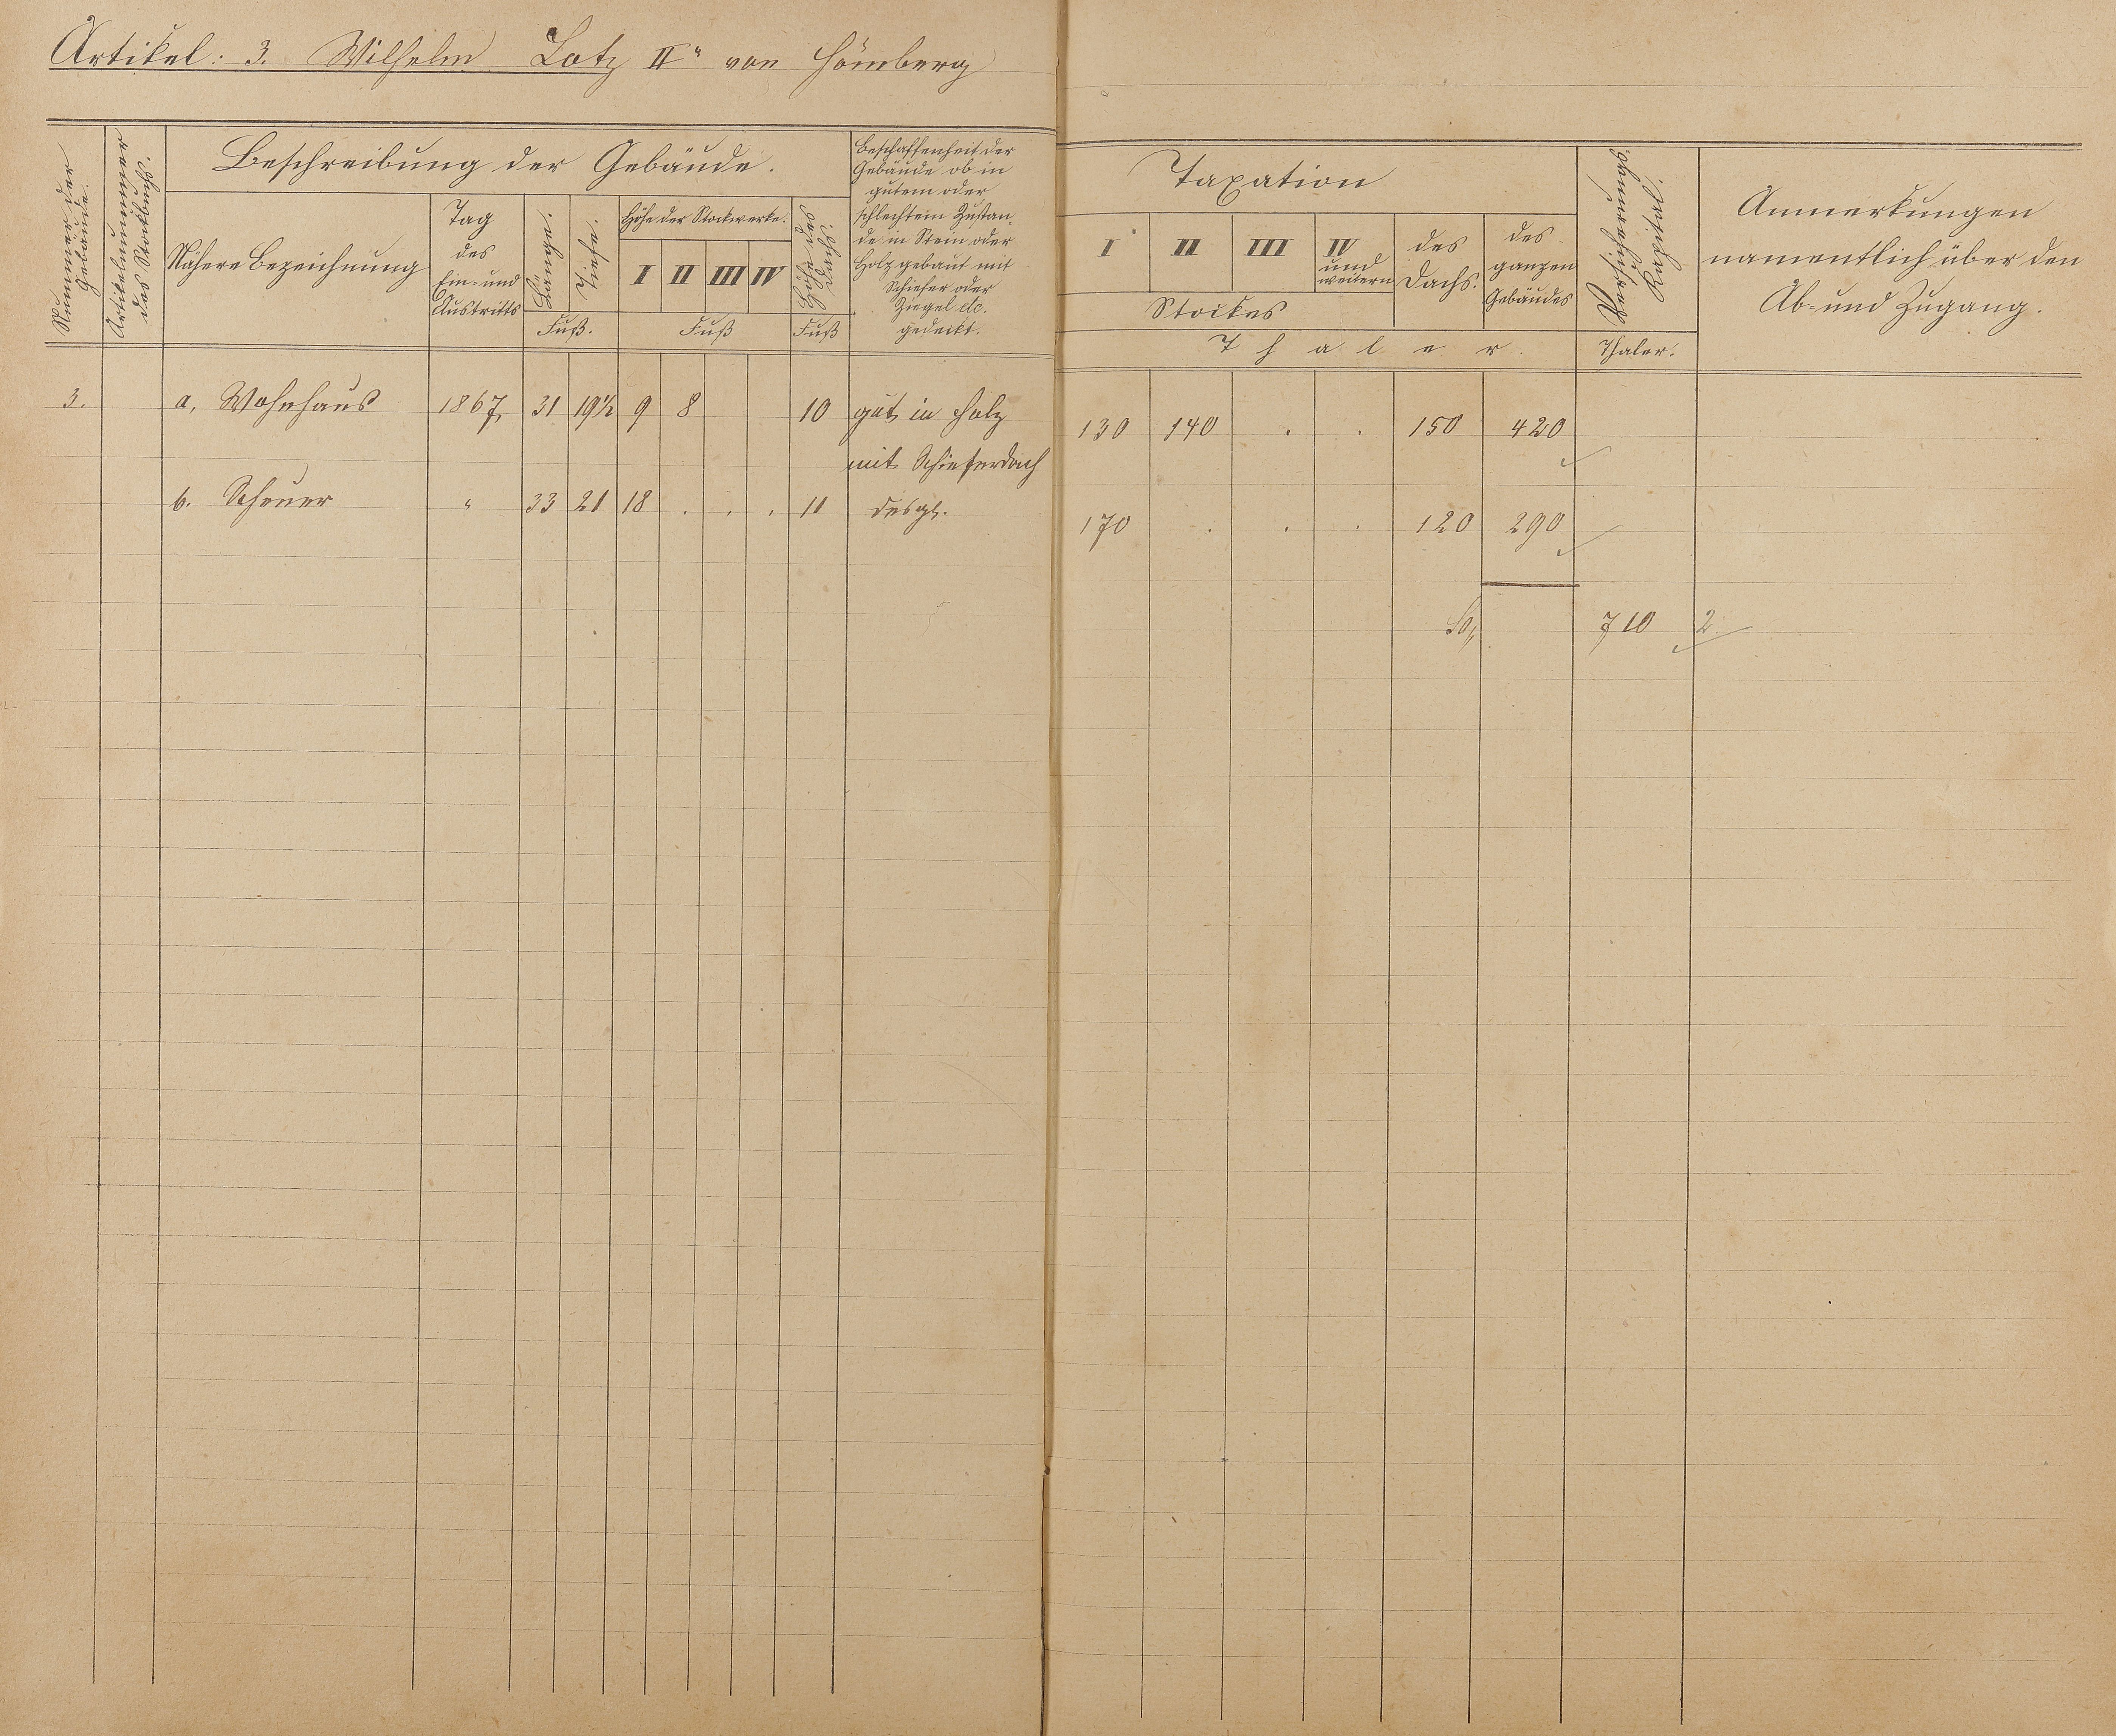 Artikel: 3. Wilhelm Lotz II" von Hömberg
Nummer der Gebäude.
Artikelnummer des Stockbuchs.
Beschreibung der Gebäude.
Nähere Bezeichnung
Tag
des
Ein- und
Austritts
Länge.
Tiefe.
Fuß.
Höhe der Stockwerke.
I II III IV
Fuß
Höhe des Dachs.
Fuß
Beschaffenheit der
Gebäude ob in
gutem oder
schlechtem Zustan-
de in Stein oder
Holz gebaut mit
Schiefer oder
Ziegel etc.
gedeckt.
Taxation
I II III IV
und
weitern
Stockes
des
Dachs.
des
ganzen
Gebäudes
Thaler.
Versicherungs
Kapital.
Thaler.
Anmerkungen
namentlich über den
Ab- und Zugang.
3. a, Wohnhaus 1867 31 19½ 9 8 10 gut in Holz
mit Schieferdach
130 140 . . 150 420
b. Scheuer " 33 21 18 . . . 11 desgl.
170 . . . 120 290
710 2.